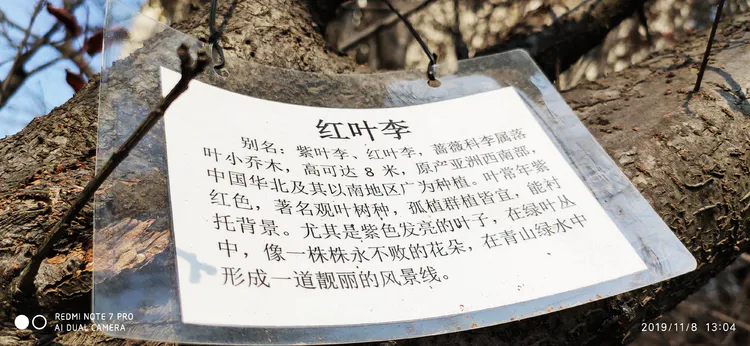 红叶李
别名：紫叶李、红叶李，蔷薇科李属落
叶小乔木，高可达 8 米，原产亚洲西南部，
中国华北及其以南地区广为种植。叶常年紫
红色，著名观叶树种，孤植群植皆宜，能衬
托背景。尤其是紫色发亮的叶子，在绿叶丛
中，像一株株永不败的花朵，在青山绿水中
形成一道靓丽的风景线。
REDMI NOTE 7 PRO
AI DUAL CAMERA
2019/11/8 13:04